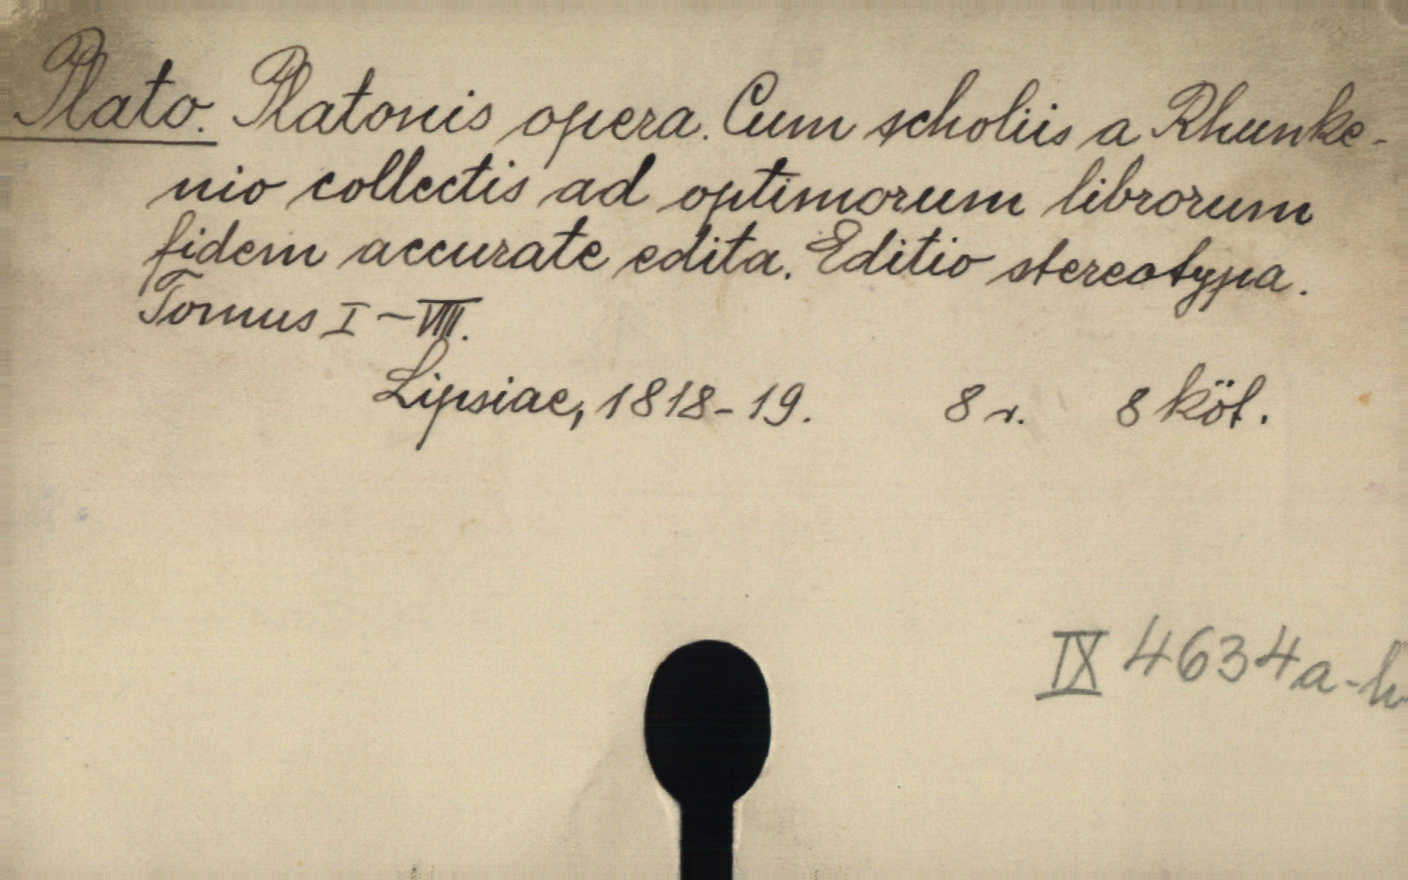 Plato. Platonis opera. Cum scholiis a Rhunke-
nio collectis ad optimorum librorum
fidem accurate edita. Editio stereotypa.
Tomus I-VIII.
Lipsiae, 1818-19. 8 r. 8 köt.
IX 4634a-h